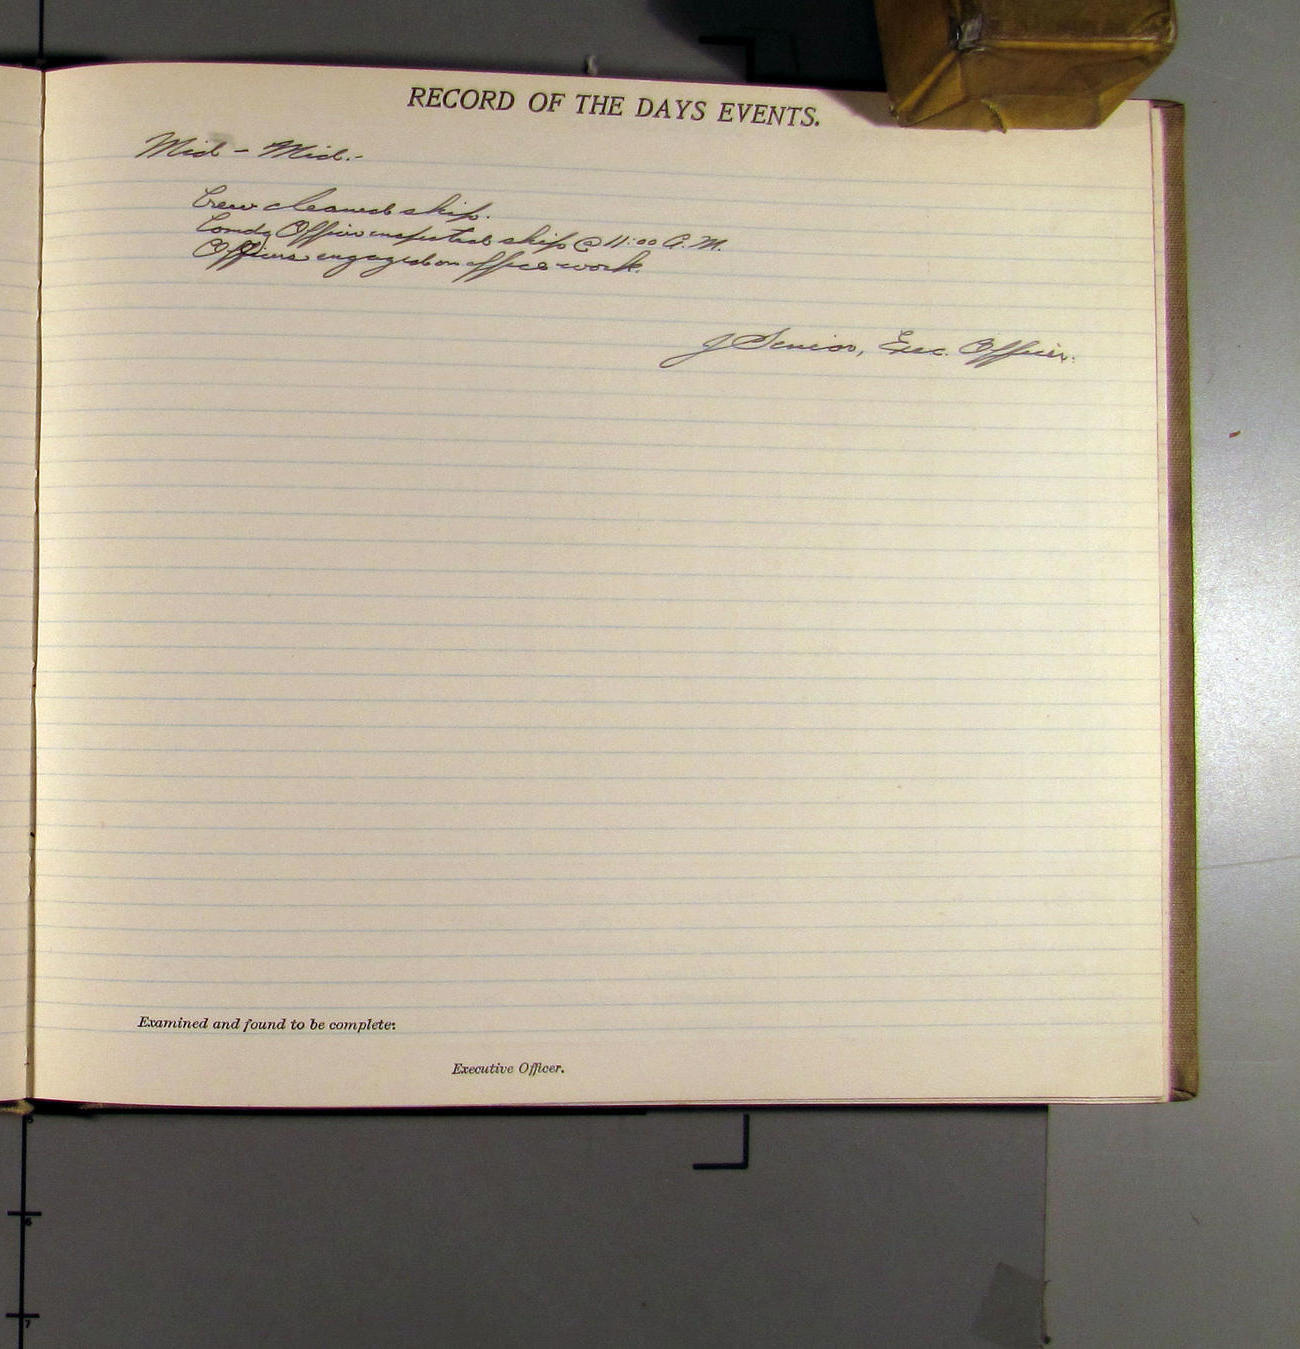 RECORD OF THE DAYS EVENTS.
Mid - Mid.-
Crew cleaned ship.
Comdg Officer inspected ship @ 11:00 A.M.
Officers engaged on office work.
J Senior, Exec. Officer.
Examined and found to be complete:
Executive Officer.
6
7